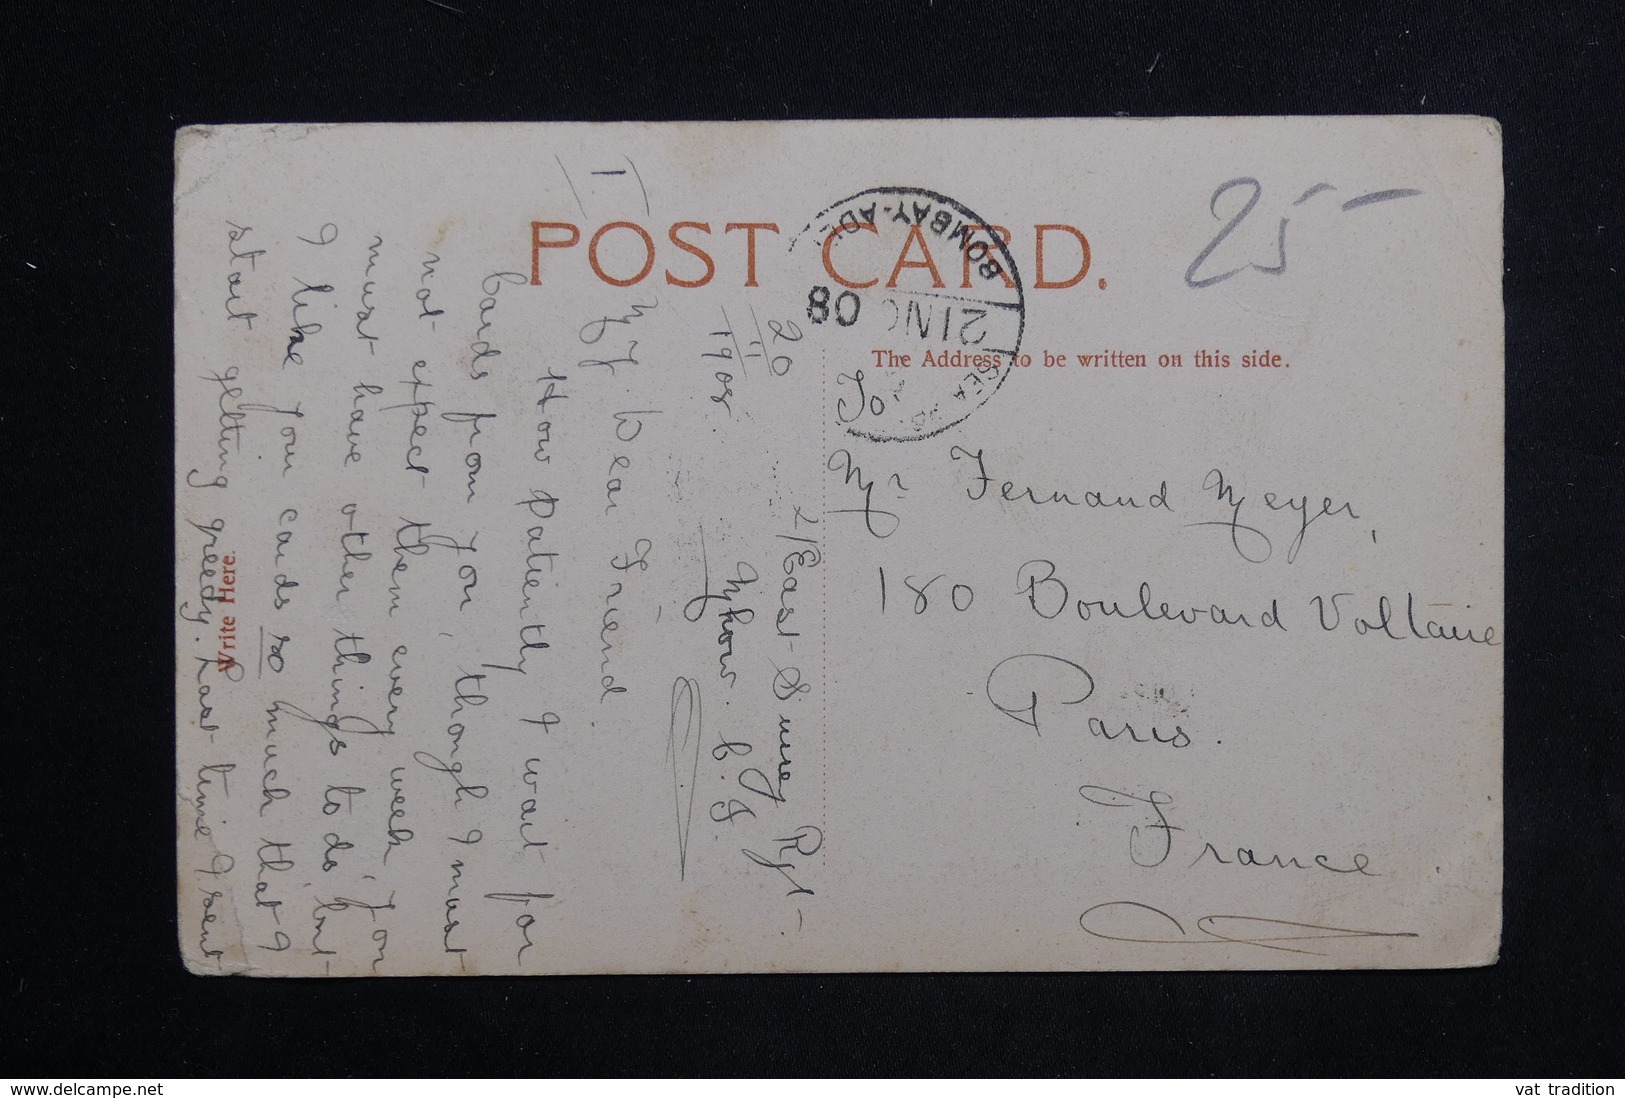 POST CARD.
The Address to be written on this side.
Write Here.
25 -
BOMBAY-ADEN
21 NO
08
SEA
I.
20/11
1908.
2/East Surrey Rgt-
Mhow. C. I.
My Dear Friend.
How patiently I wait for
Cards from you, though I must
not expect them every week, you
must have other things to do, but-
I like your cards so much that I
start getting greedy. Last time I sent
To.
Mr Fernand Meyer,
180 Boulevard Voltaire
Paris.
France.
www.delcampe.net
vat tradition